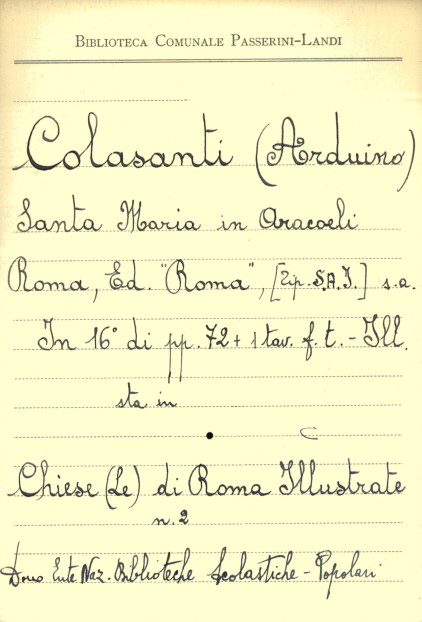 BIBLIOTECA COMUNALE PASSERINI-LANDI
Colasanti (Arduino)
Santa Maria in Aracoeli
Roma, Ed. "Roma", [Tip. S.A.I.] s.a.
In 16° di pp. 72 + 1 tav. f. t. - Ill.
sta in
Chiese (Le) di Roma Illustrate
n. 2
Dono Ente Naz. Biblioteche Scolastiche - Popolari